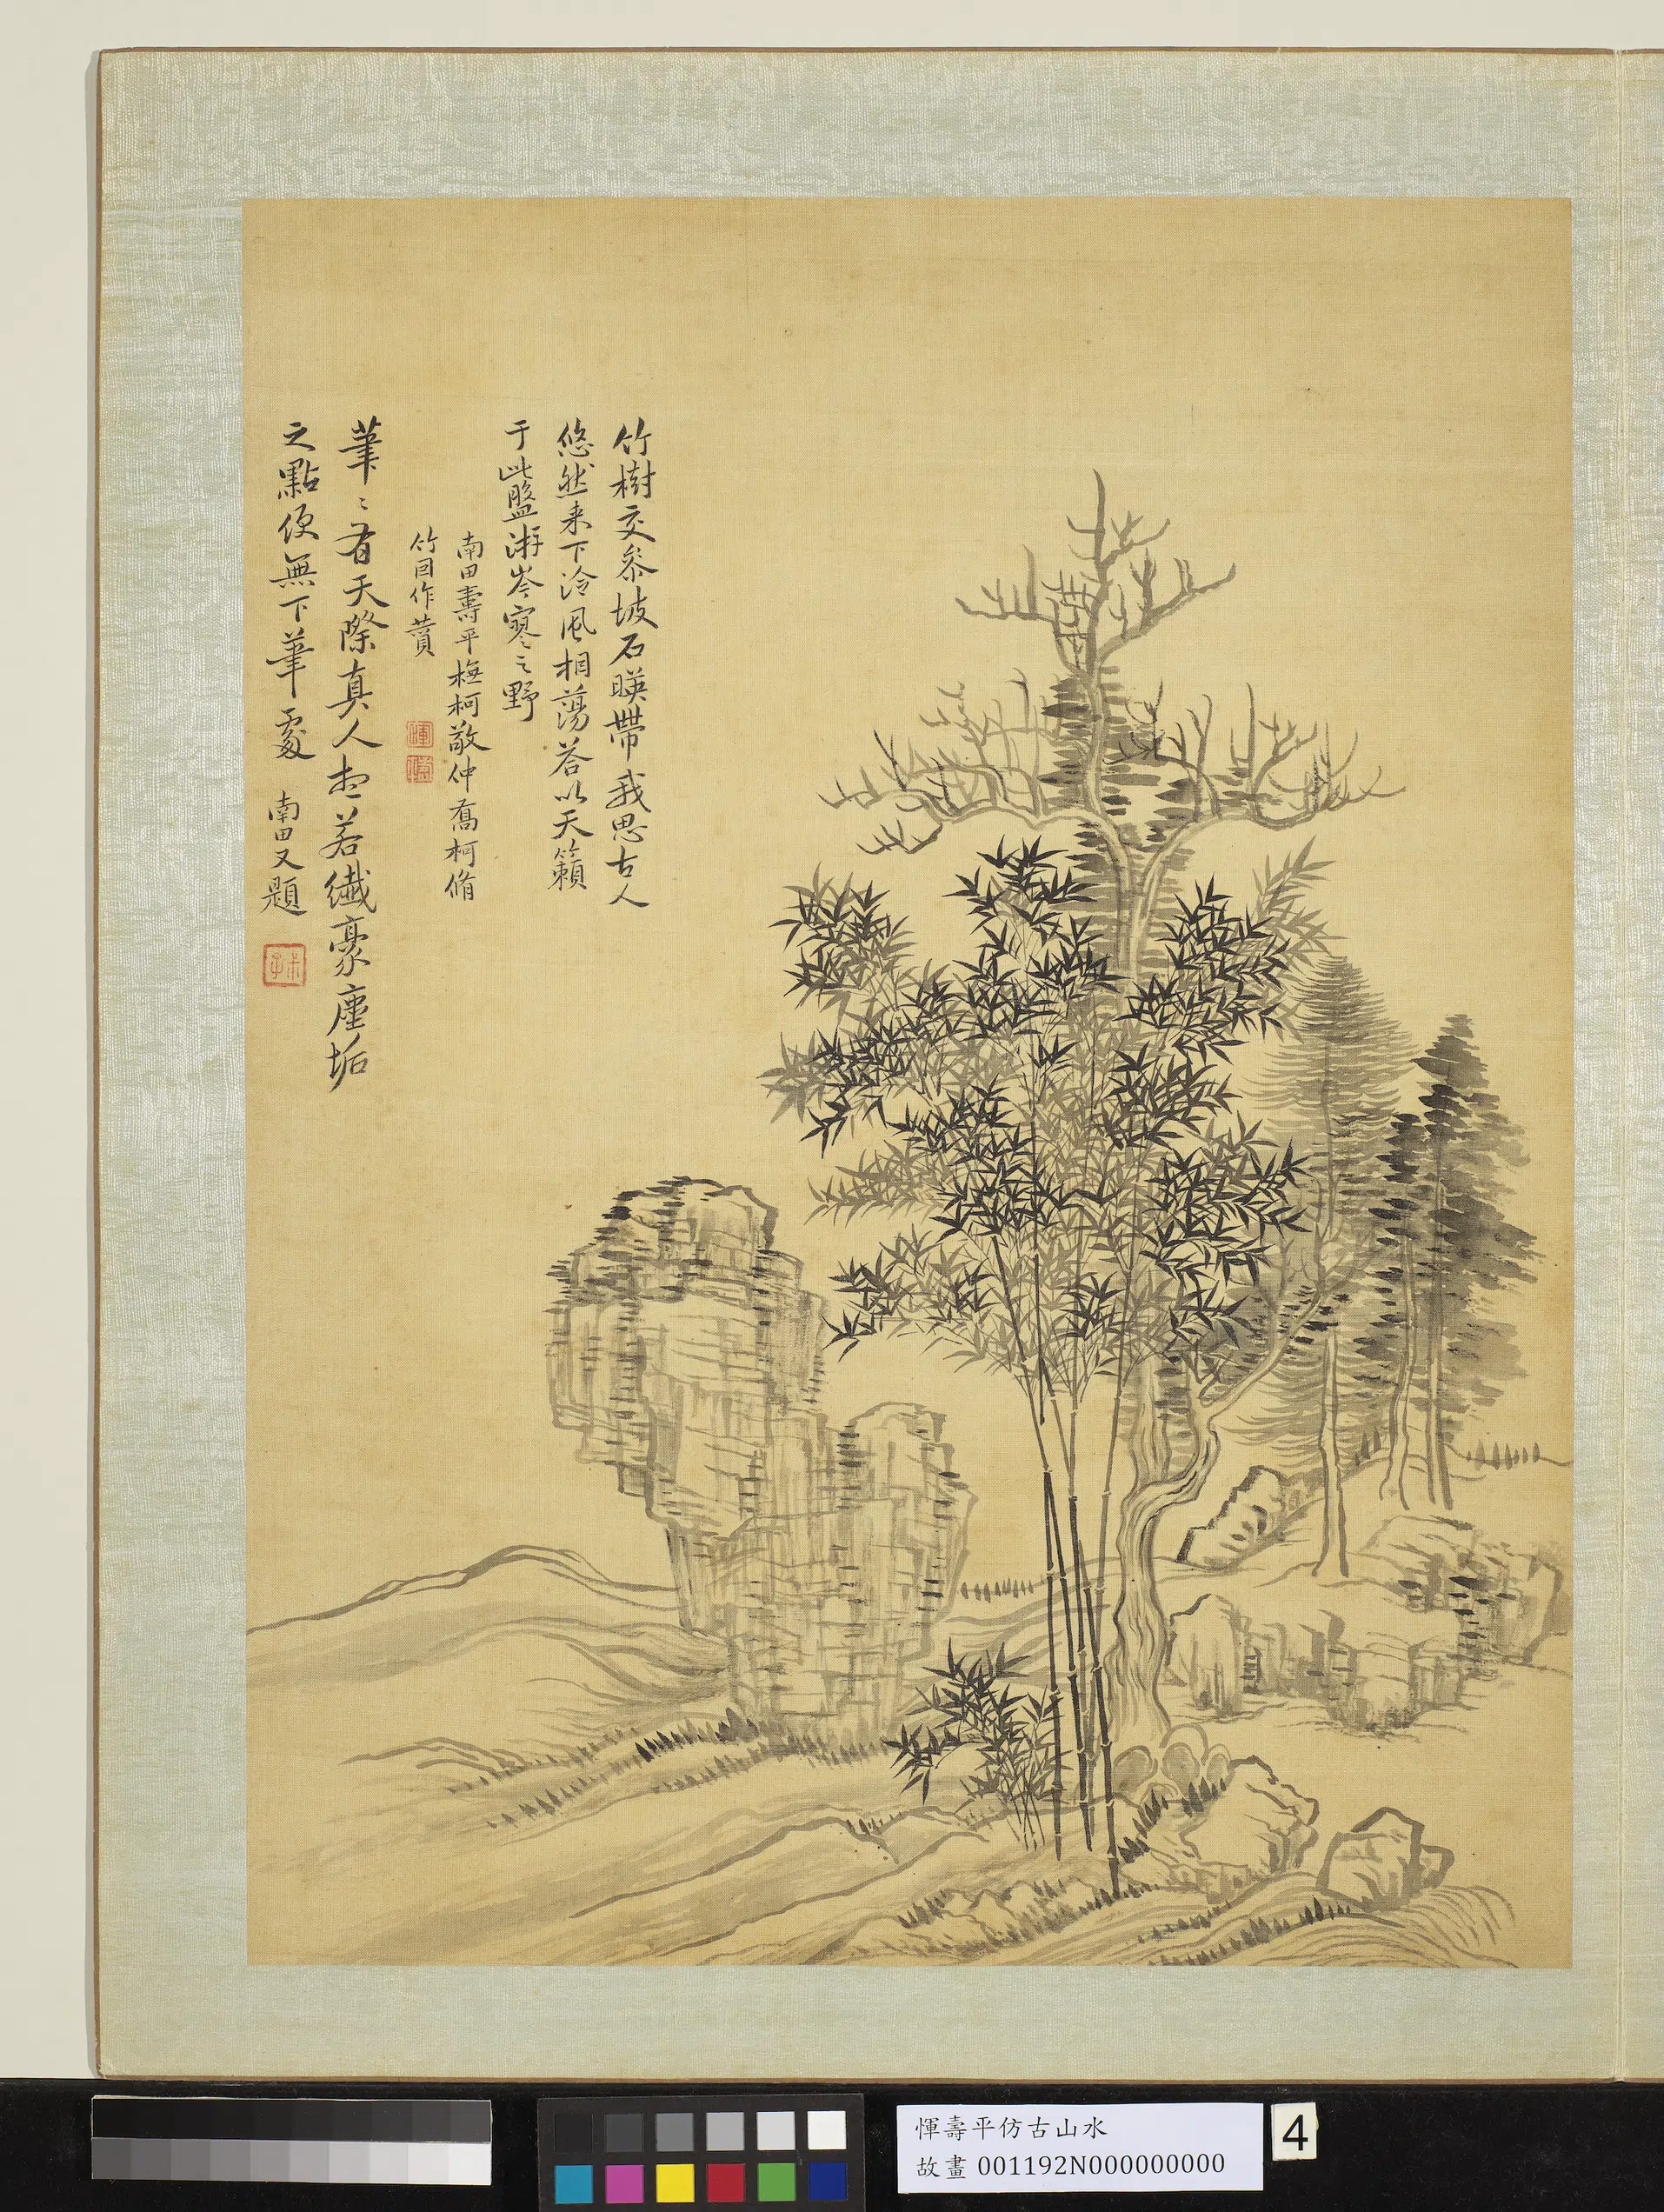 竹樹交參坡石暎帶我思古人
悠然来下泠風相蕩荅以天籟
于此盤游岑寥之野
南田壽平橅柯敬仲喬柯脩
竹回作贊
筆〻有天際真人想若纖豪塵垢
之點便無下筆處 南田又題
惲壽平仿古山水
故畫 001192N000000000
4